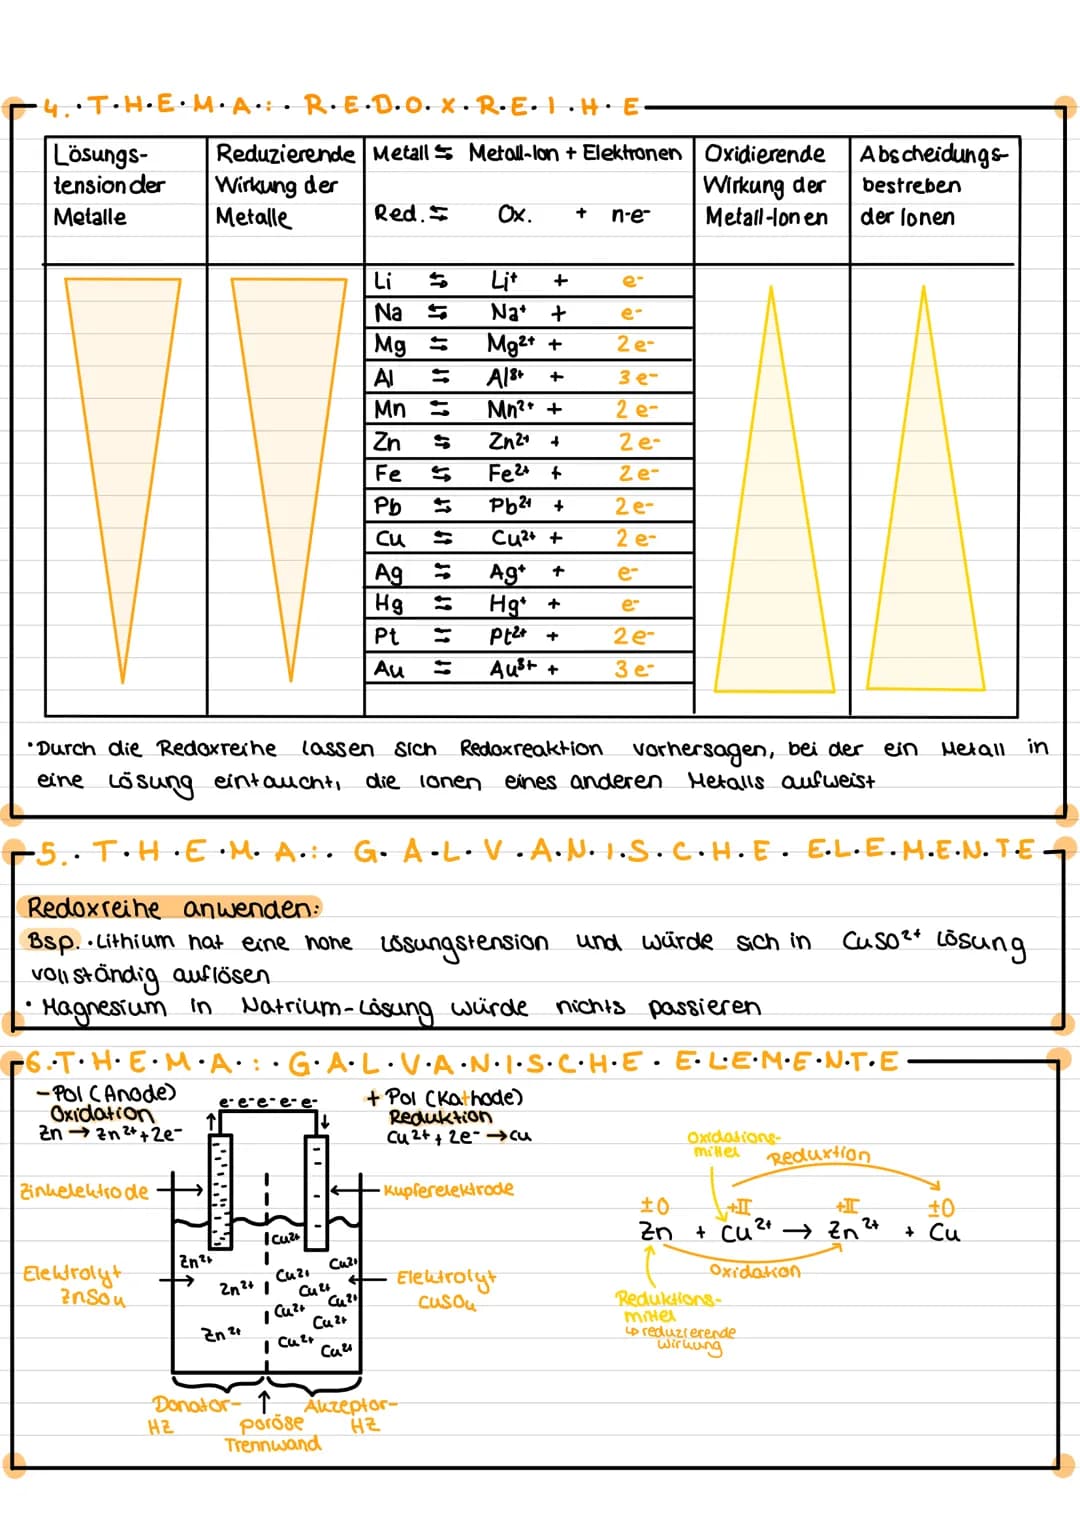 4. THEMA: REDOXREIHE
Lösungs-
tension der
Metalle
Reduzierende
Wirkung der
Metalle
Metall ⇆ Metall-Ion + Elektronen
Red. ⇆ Ox. + n·e-
Oxidierende
Wirkung der
Metall-Ionen
Abscheidungs-
bestreben
der Ionen
Li ⇆ Li+ + e-
Na ⇆ Na+ + e-
Mg ⇆ Mg2+ + 2e-
Al ⇆ Al3+ + 3e-
Mn ⇆ Mn2+ + 2e-
Zn ⇆ Zn2+ + 2e-
Fe ⇆ Fe2+ + 2e-
Pb ⇆ Pb2+ + 2e-
Cu ⇆ Cu2+ + 2e-
Ag ⇆ Ag+ + e-
Hg ⇆ Hg+ + e-
Pt ⇆ Pt2+ + 2e-
Au ⇆ Au3+ + 3e-
•Durch die Redoxreihe lassen sich Redoxreaktion vorhersagen, bei der ein Metall in
eine Lösung eintaucht, die Ionen eines anderen Metalls aufweist
5. THEMA: GALVANISCHE ELEMENTE
Redoxreihe anwenden:
Bsp. •Lithium hat eine hohe Lösungstension und würde sich in CuSO2+ Lösung
vollständig auflösen
• Magnesium in Natrium-Lösung würde nichts passieren
6. THEMA: GALVANISCHE ELEMENTE
-Pol (Anode)
Oxidation
Zn → Zn2+ + 2e-
e-e-e-e-e-
+ Pol (Kathode)
Reduktion
Cu2+ + 2e- → Cu
Zinkelektrode
Kupferelektrode
Elektrolyt
ZnSO4
Elektrolyt
CuSO4
Zn2+
Zn2+
Zn2+
Cu2+
Cu2+
Cu2+
Cu2+
Cu2+
Cu2+
Cu2+
Cu2+
Cu2+
Donator-
HZ
poröse
Trennwand
Akzeptor-
HZ
Oxidations-
mittel
Reduxtion
±0 +II +II ±0
Zn + Cu2+ → Zn2+ + Cu
Oxidation
Reduktions-
mittel
↳ reduzierende
Wirkung